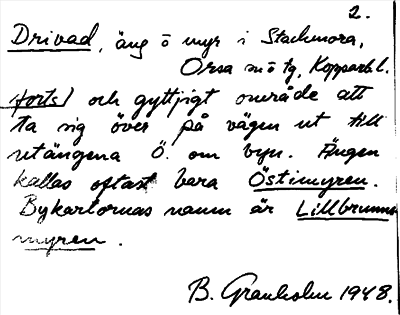 2.
Drivad, äng o myr i Stackmora,
Orsa sn o tg, Kopparb.l.
(forts) och gyttjigt område att
ta sig över på vägen ut till
utängena Ö. om byn. Ängen
kallas oftast bara Östimyren.
Bykartornas namn är Lillbrunns-
myren.
B. Granholm 1948.